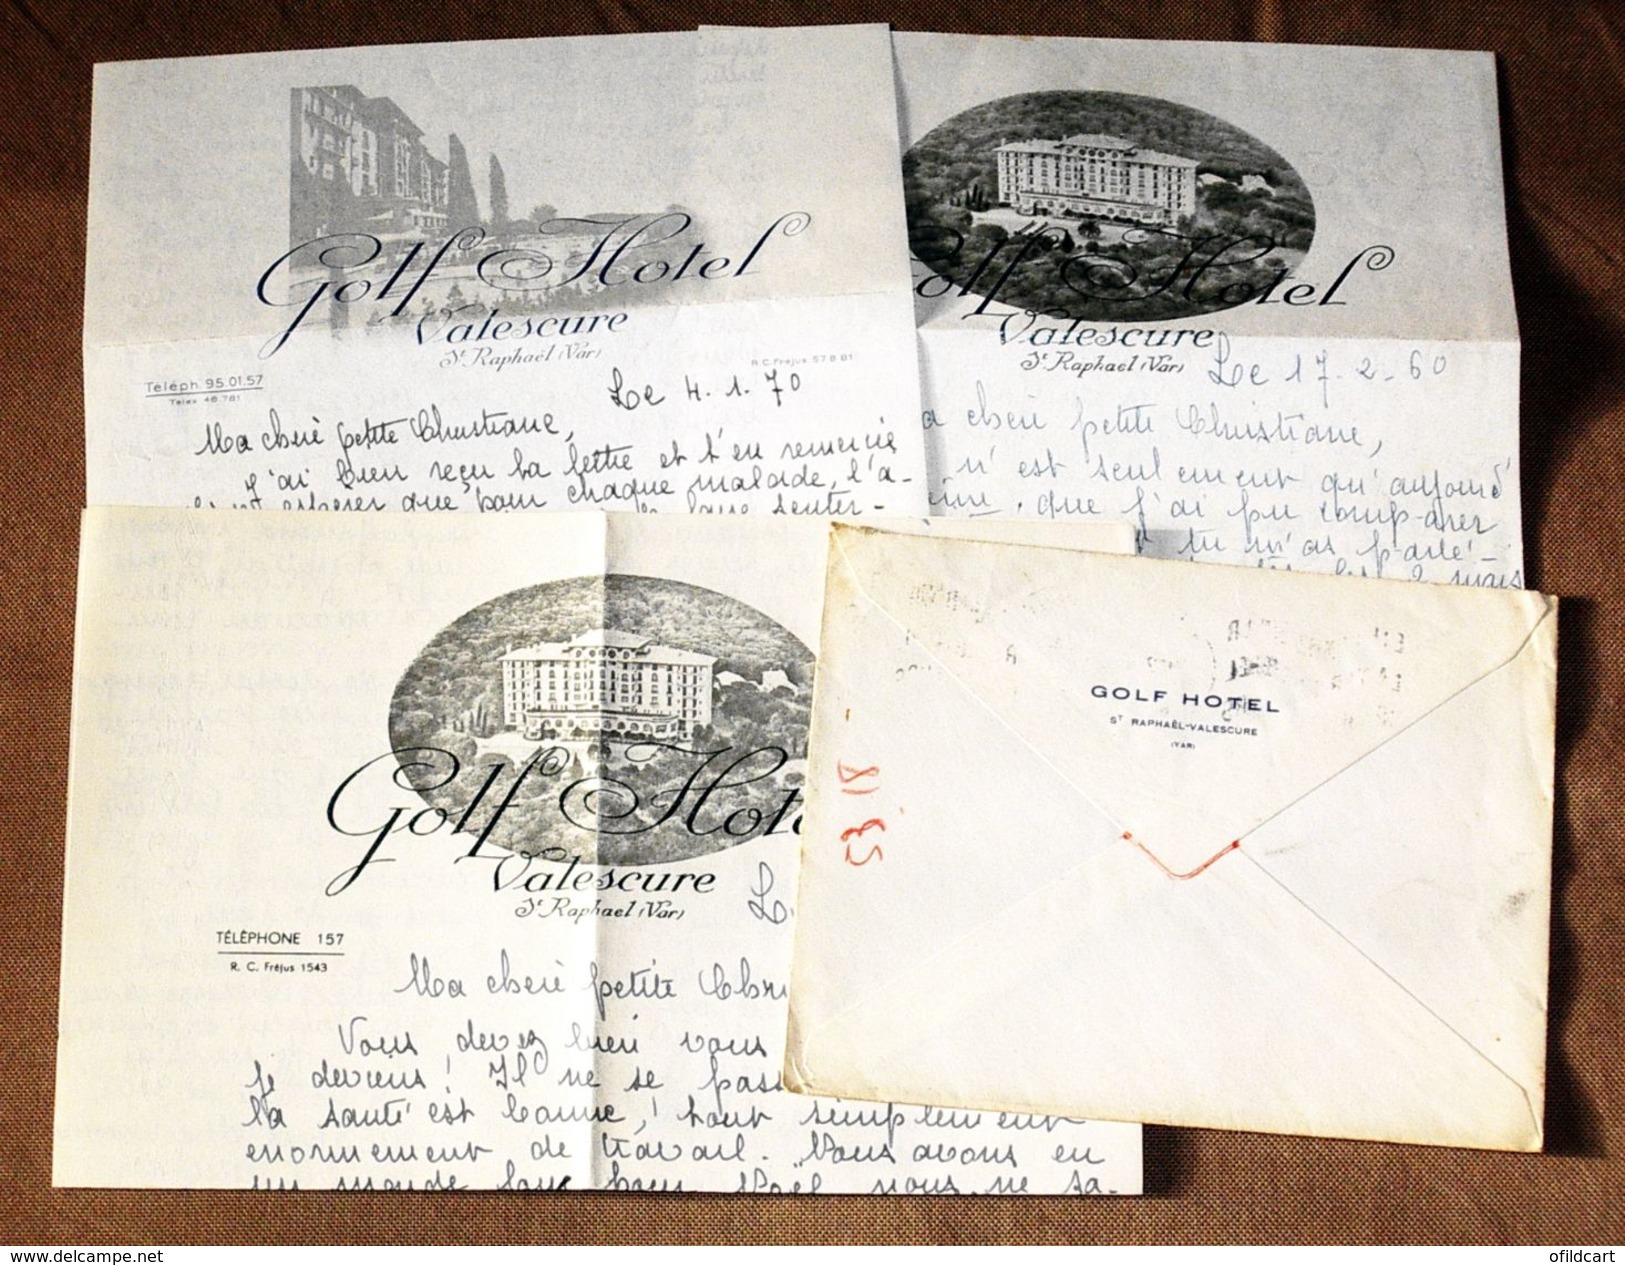 Golf Hotel
Valescure
St Raphaël (Var)
R.C. Fréjus 57 B 81
Téléph. 95.01.57
Telex 46.781
Le 4.1.70
Ma chère petite Christiane,
J'ai bien reçu ta lettre et t'en remercie
espérer que pour chaque malade, l'a-
senter-
Hotel
Valescure
St Raphaël (Var)
Le 17.2.60
chère petite Christiane,
n'est seulement qu'aujourd'
que j'ai pu comparer
tu m'as parlé-
2 mois
Golf Hot
Valescure
St Raphael (Var)
TÉLÉPHONE 157
R. C. Fréjus 1543
Ma chère petite Chri
Vous devez bien vous
je deviens! Il ne se pass
la santé est bonne, tout simplement
énormement de travail. Nous avons eu
un monde fou pour Noël, nous ne sa-
GOLF HOTEL
ST RAPHAËL-VALESCURE
(VAR)
www.delcampe.net
ofildcart